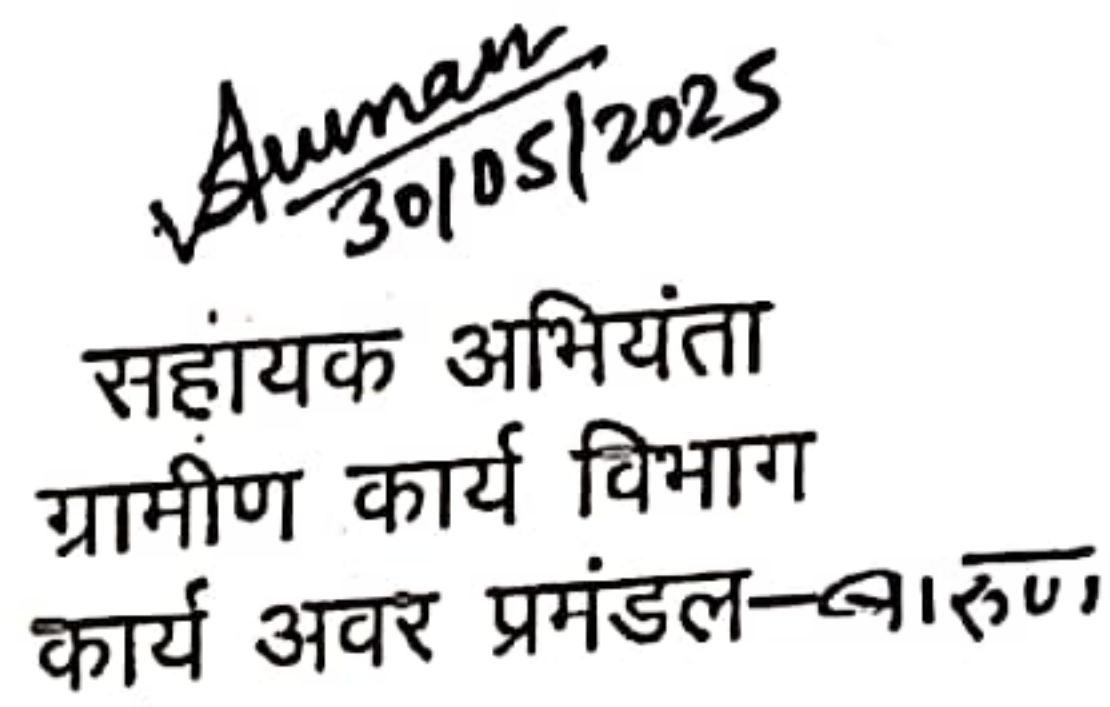 Suman
30/05/2025
सहायक अभियंता
ग्रामीण कार्य विभाग
कार्य अवर प्रमंडल-बारुण